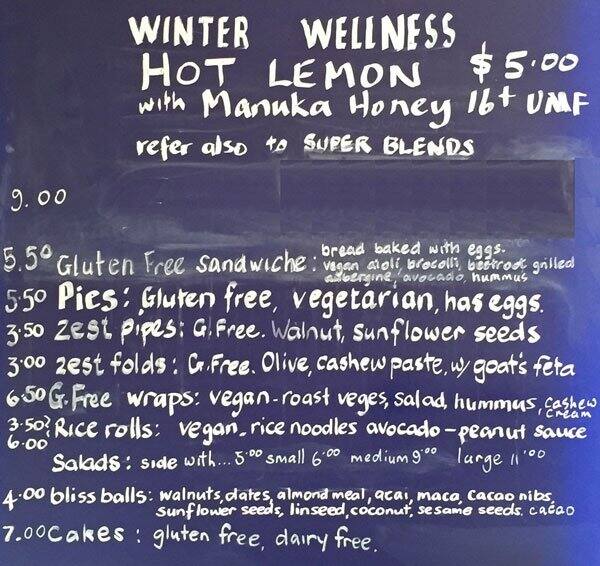 WINTER WELLNESS
HOT LEMON $5.00
with Manuka Honey 16+ UMF
refer also to SUPER BLENDS
9.00
5.50 Gluten Free sandwiche: bread baked with eggs.
vegan aioli, brocolli, beetroot grilled
aubergine, avocado, hummus
5.50 Pies: Gluten free, vegetarian, has eggs.
3.50 zest pipes: G.Free. Walnut, sunflower seeds
3.00 zest folds: G.Free. Olive, cashew paste, w/ goat's feta
6.50 G.Free wraps: vegan-roast veges, salad, hummus, cashew
cream
3.50? Rice rolls: vegan. rice noodles avocado-peanut sauce
6.00
Salads: side with... 5.00 small 6.00 medium 9.00 large 11.00
4.00 bliss balls: walnuts, dates, almond meal, acai, maca, cacao nibs,
sunflower seeds, linseed, coconut, sesame seeds. cacao
7.00 Cakes: gluten free, dairy free.